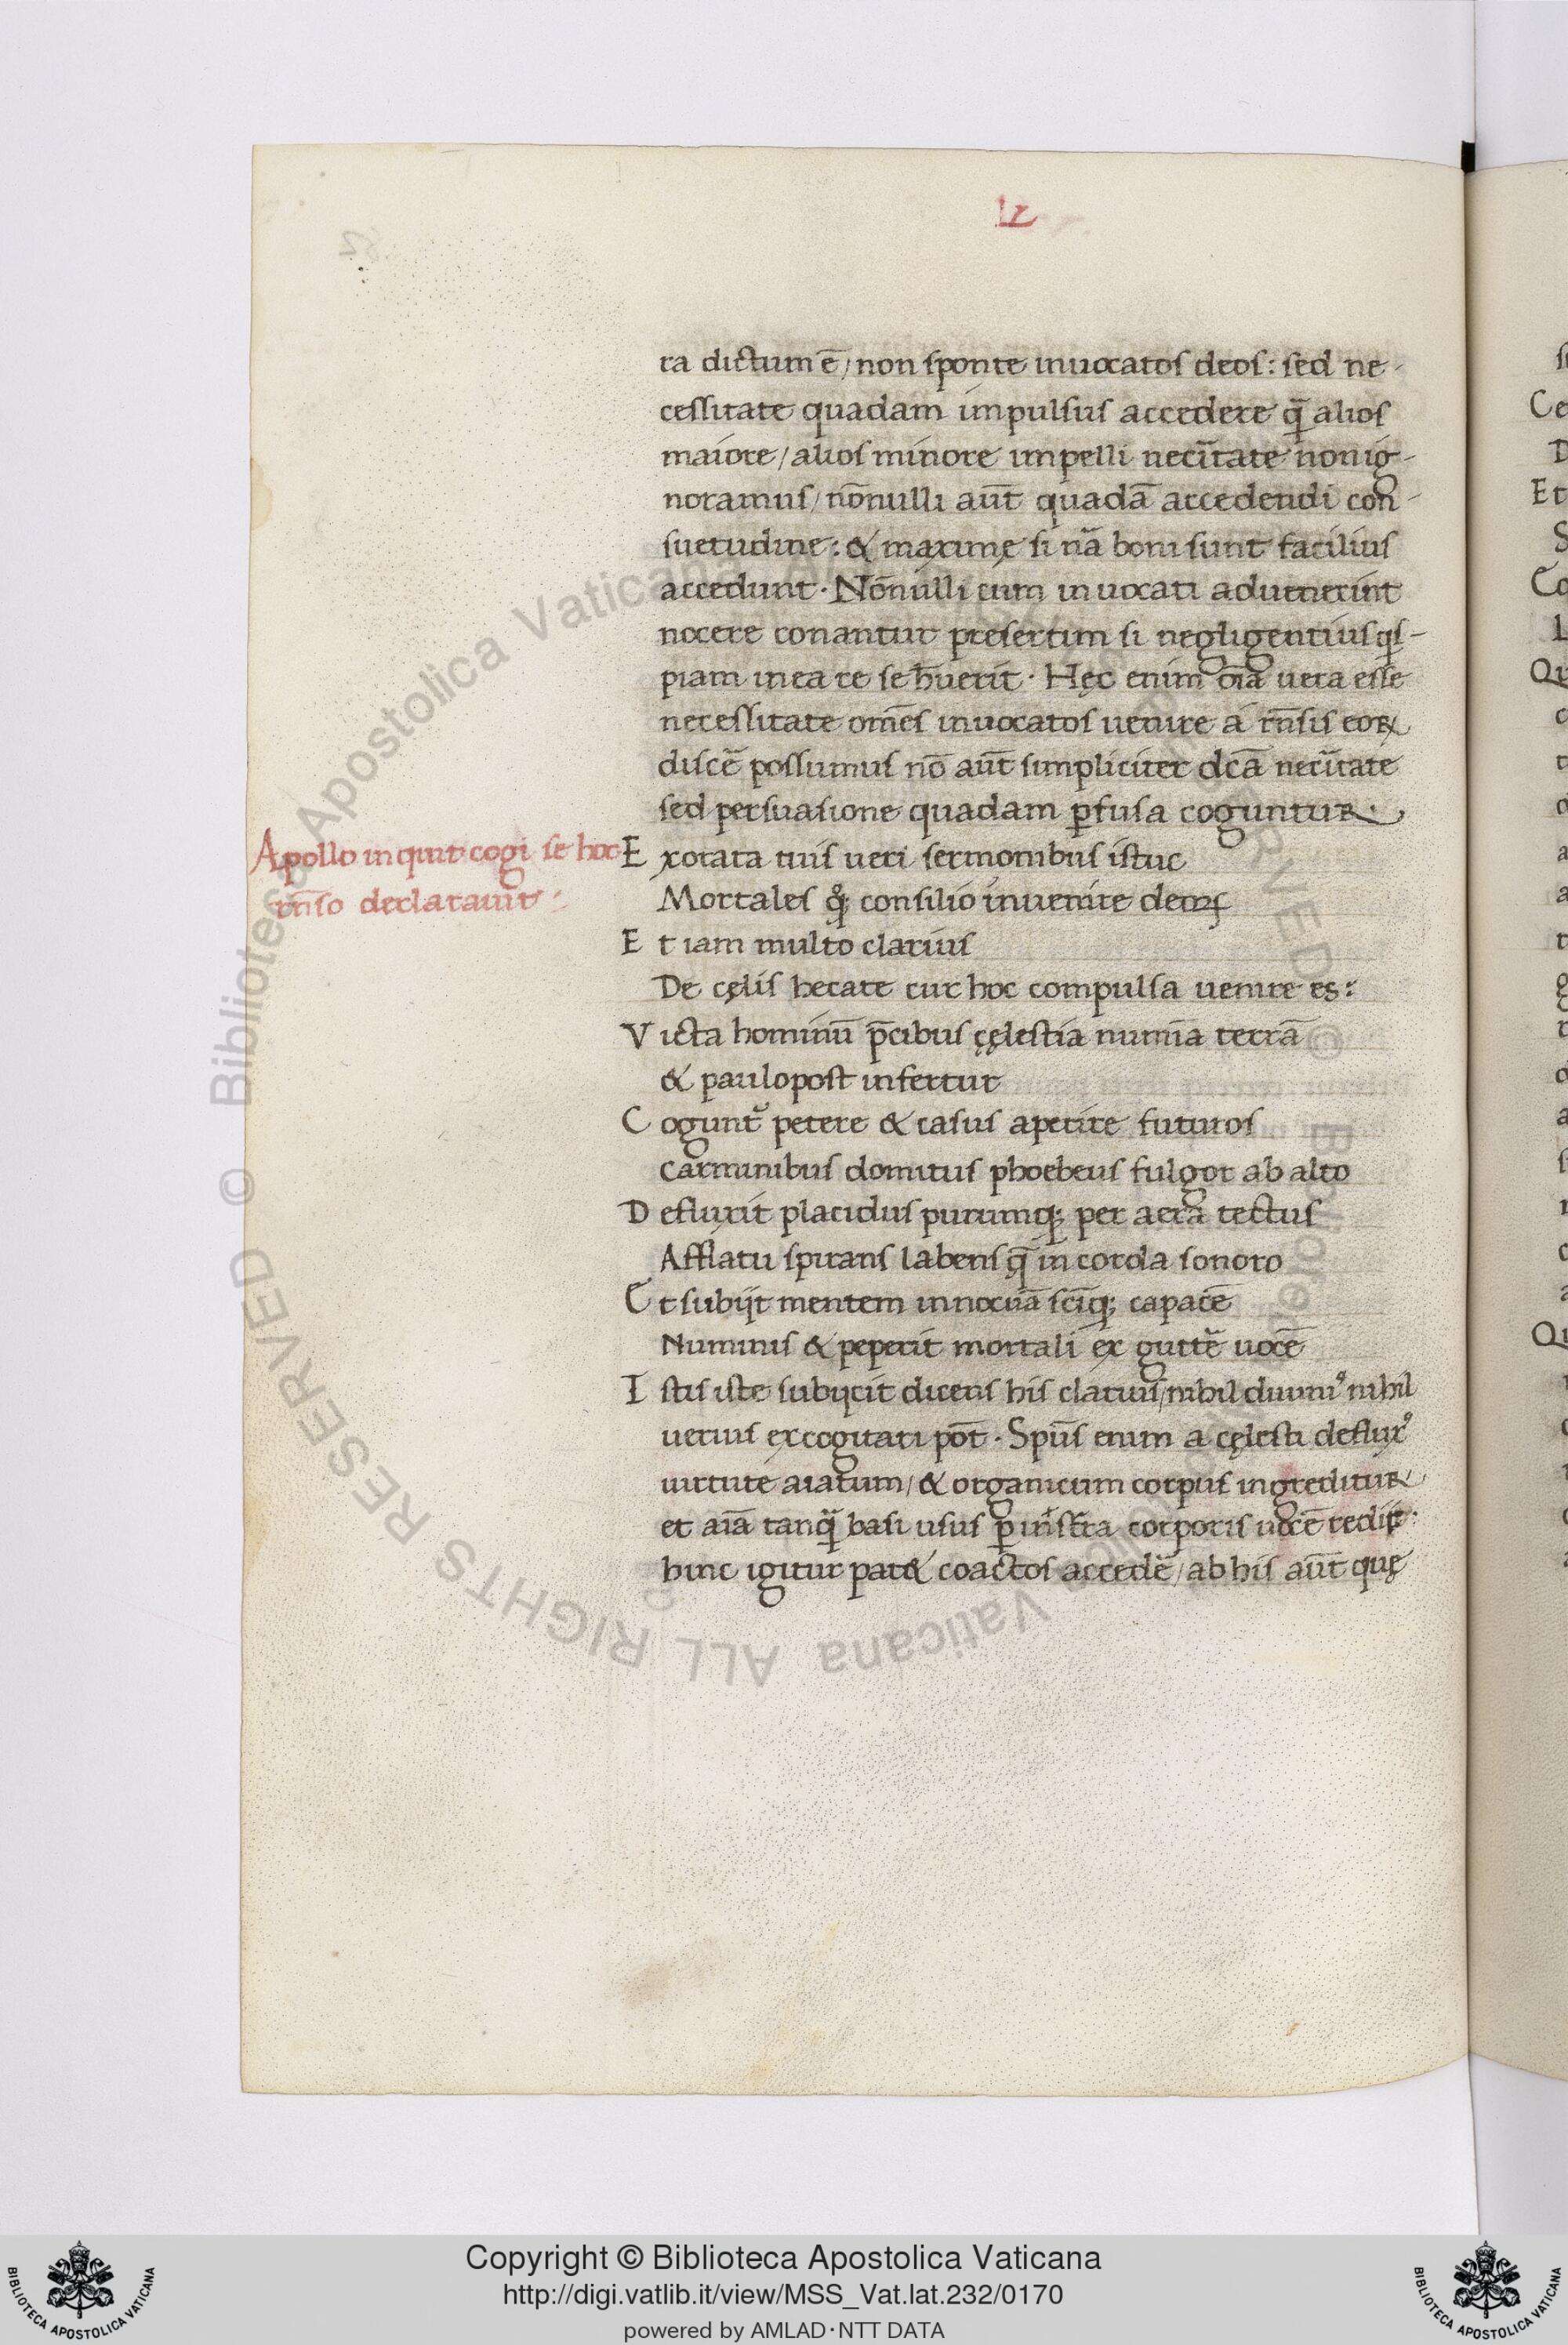 L
ra dictum ē / non sponte inuocatos deos: sed ne-
cessitate quadam impulsus accedere q̄ alios
maiore / alios minore impelli nec̄itate non ig-
noramus / nōnulli aūt quadā accedendi con-
suetudine: & maxime si nā boni sunt facilius
accedunt · Nōnulli cum inuocati aduenerint
nocere conantur presertim si negligentius qs-
piam in ea re se h̄uerit · Hęc enim oīa uera esse
necessitate omēs inuocatos uenire a rn̄sis eoꝝ
discē possumus nō aūt simpliciter dcā nec̄itate
sed persuasione quadam ꝑfusa coguntur ·
Apollo inquit cogi se hoc
rn̄so declarauit :
E xorata tuis ueri sermonibus istuc
Mortales qͦꝫ consilio inuenire deoꝝ
E t iam multo clarius
De cęlis hecate cur hoc compulsa uenire es:
V icta hominū p̄cibus cęlestia numīa terrā
& paulopost infertur
C ogunt᷑ petere & casus aperire futuros
Carminibus domitus phoebeus fulgor ab alto
D efluxit placidus purumqꝫ per aera tectus
Afflatu spirans labensq̄ in corda sonoro
E t subijt mentem innocuā scīqꝫ capacē
Numinis & peperit mortali ex gutt᷑e uocē
I stis iste subijcit dicens his clarius / nihil diuiniꝰ nihil
uerius excogitari pōt · Spūs enim a cęlesti defluxꝰ
uirtute aīatum / & organicum corpus ingreditur
et aīa tanq̄ basi usus ꝑ inst̄ra corporis uocē reddit:
hinc igitur pat& coactos accedē / ab his aūt quę
Copyright © Biblioteca Apostolica Vaticana
http://digi.vatlib.it/view/MSS_Vat.lat.232/0170
powered by AMLAD·NTT DATA
BIBLIOTECA APOSTOLICA VATICANA
BIBLIOTECA APOSTOLICA VATICANA
© Biblioteca Apostolica Vaticana ALL RIGHTS RESERVED